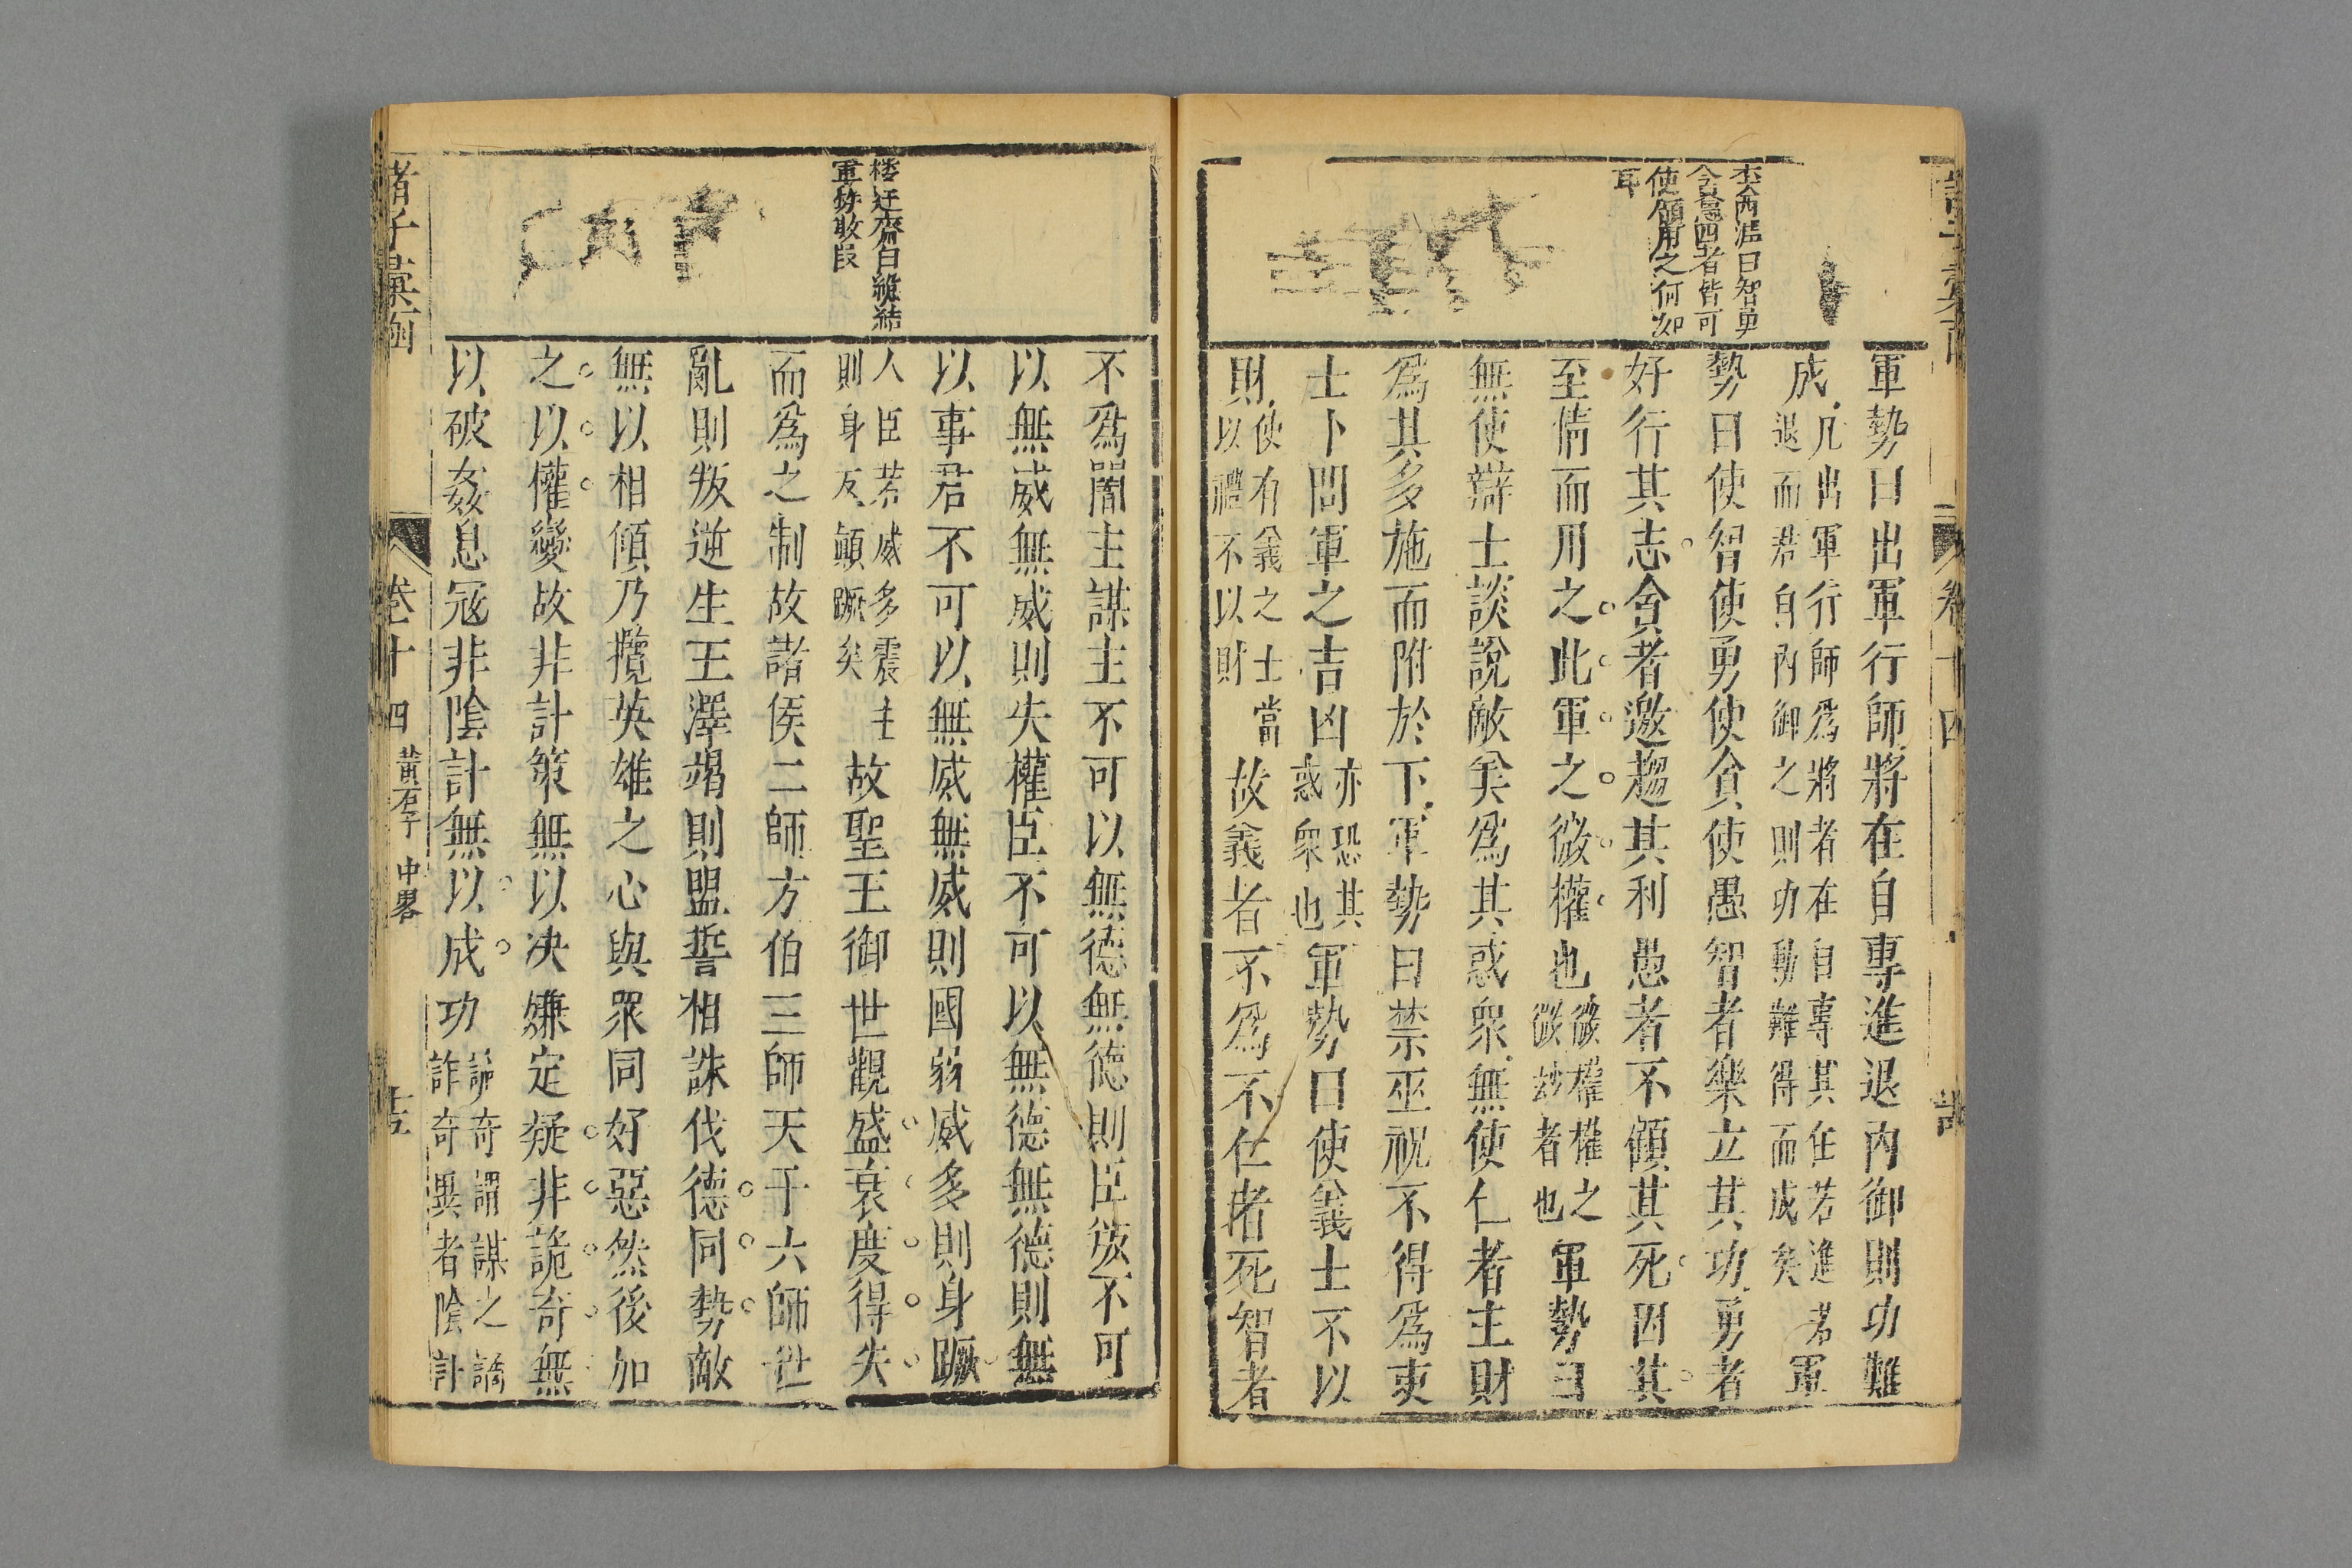 軍勢曰出軍行師將在自專進退內御則功難
成凡出軍行師為將者在自專其任若進若
退而君自內御之則功動難得而成矣
軍
勢曰使智使勇使貪使愚智者樂立其功勇者
好行其志貪者邀趨其利愚者不顧其死因其
至情而用之此軍之微權也微權權之
微妙者也
軍勢曰
無使辯士談說敵美為其惑衆無使仁者主財
為其多施而附於下軍勢曰禁巫祝不得為吏
士卜問軍之吉凶亦恐其
惑衆也
軍勢曰使義士不以
財使有義之士當
以禮不以財
故義者不為不仁者死智者
曰智勇
貪愚四者皆可
使顧用之何如
耳
不為闇主謀主不可以無德無德則臣叛不可
以無威無威則失權臣不可以無德無德則無
以事君不可以無威無威則國弱威多則身蹶
人臣若威多震主
則身反顛蹶矣
故聖王御世觀盛衰度得失
而為之制故諸侯二師方伯三師天子六師世
亂則叛逆生王澤竭則盟誓相誅伐德同勢敵
無以相傾乃攬英雄之心與眾同好惡然後加
之以權變故非計策無以決嫌定疑非詭奇無
以破姦息寇非陰計無以成功詭奇謂謀之譎
詐奇異者陰計
樓迂齋曰總結
軍勢敢段
諸子彙函
卷十四
黃石子
中畧